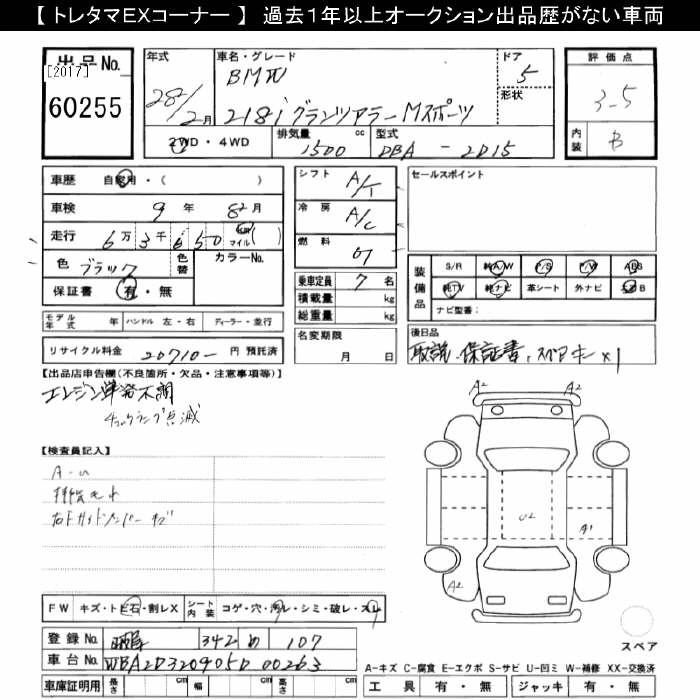 【 トレタマEXコーナー 】 過去1年以上オークション出品歴がない車両
出品No.
[2017]
60255
年式
28年
2月
車名・グレード
BMW
218i グランツアラー Mスポーツ
ドア
5
形状
2WD・4WD
排気量
1500
cc
型式
DBA - 2D15
評価点
3-5
内装
B
車歴
自家用・( )
車検
9年
月
走行
6万3千650
マイル( )
色
ブラック
色替
カラーNo.
保証書
有・無
シフト
A/T
冷房
A/C
燃料
ガ
乗車定員
7名
積載量
kg
総重量
kg
名変期限
月 日
セールスポイント
装備品
S/R
純A/W
P/S
P/W
ABS
純TV
純ナビ
革シート
外ナビ
ナビ型番:
モデル年式
年
ハンドル 左・右
ディーラー・並行
リサイクル料金
20710-
円 預託済
後日品
取説、保証書、スペアキー×1
【出品店申告欄(不良箇所・欠品・注意事項等)】
エンジン単発不調
チェックランプ点滅
【検査員記入】
A-U
右ドアサイドバンパーキズ
A2
A2
U2
A1
A2
スペア
FW
キズ・トビ石・割レX
シート内装
コゲ・穴・汚レ・シミ・破レ・スレ
登録No.
342
め
107
車台No.
WBA2D320905D00263
車庫証明用
長さ
cm
幅
cm
高さ
cm
A-キズ C-腐食 E-エクボ S-サビ U-凹ミ W-補修 XX-交換済
工具
有・無
ジャッキ
有・無